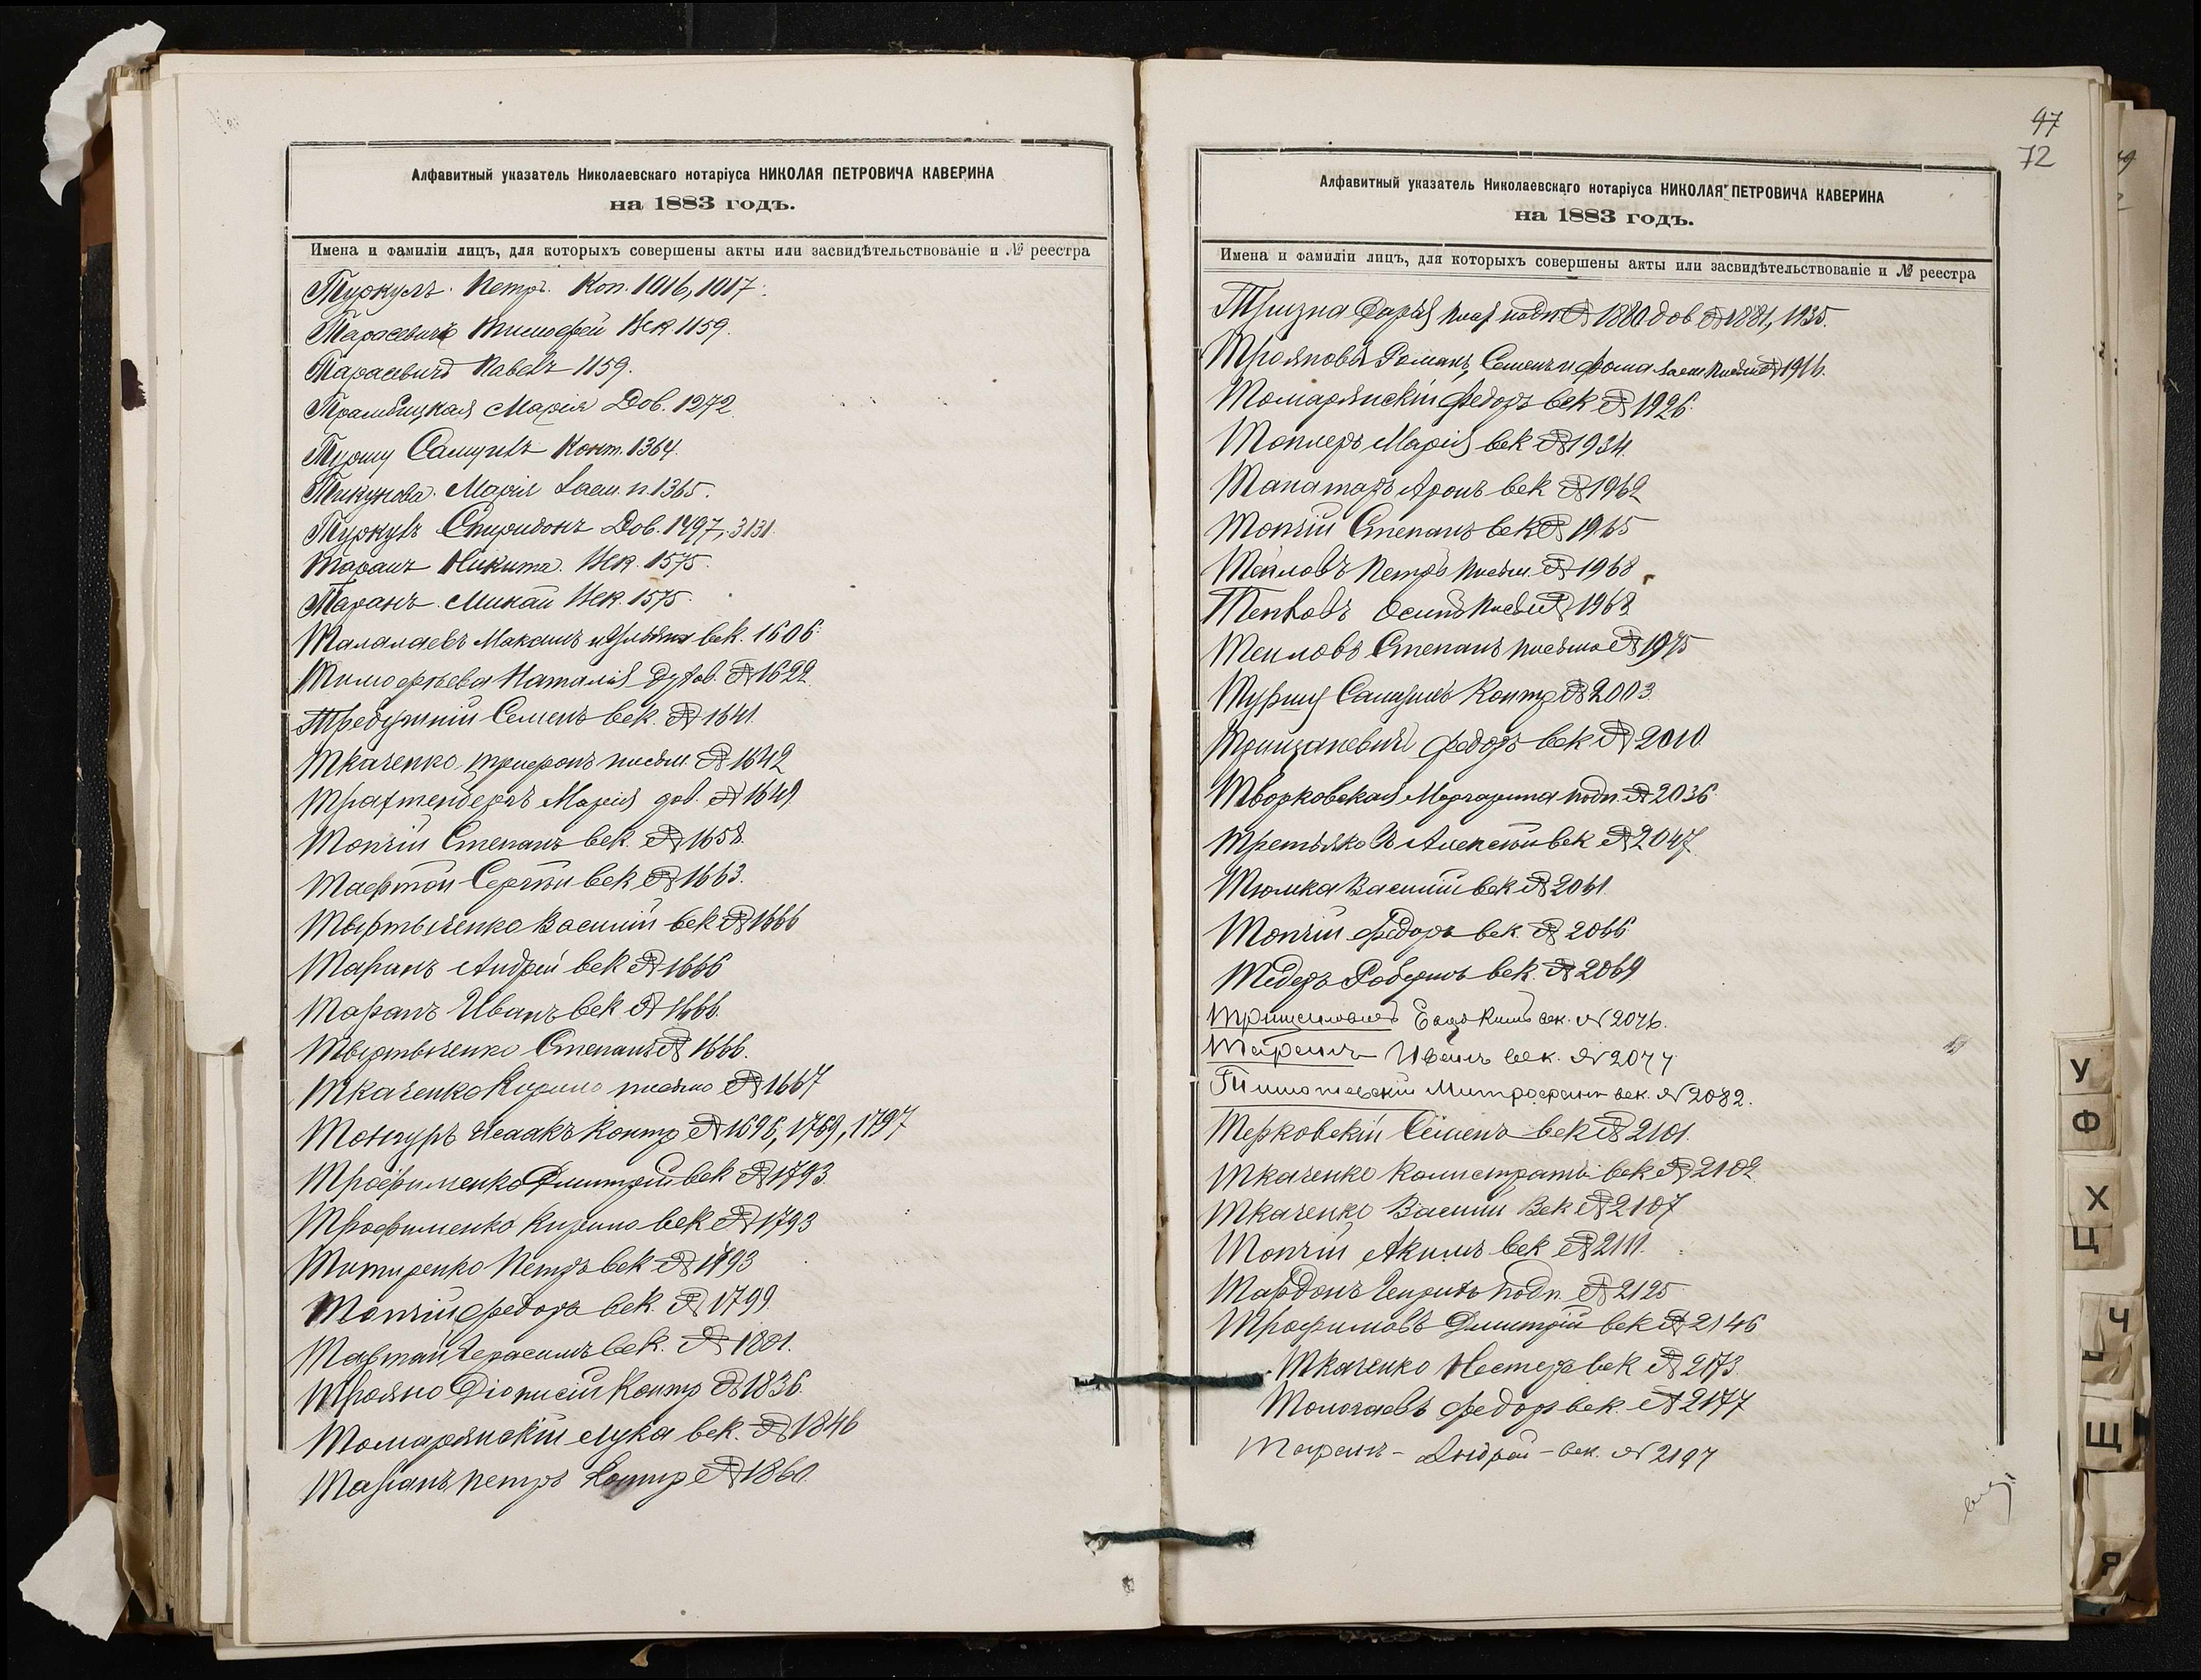 Алфавитный указатель Николаевскаго нотаріуса НИКОЛАЯ ПЕТРОВИЧА КАВЕРИНА
на 1883 годъ.
Имена и фамиліи лицъ, для которыхъ совершены акты или засвидѣтельствованіе и № реестра
Туркулъ Петръ. Коп. 1016, 1017.
Тарасевичъ Тимофей Век 1159.
Тарасевичъ Павелъ 1159.
Трамбицкая Марія Дов. 1272
Самуилъ Конт. 1364.
Тикунова Марія п. 1365.
Туркулъ Спиридонъ Дов. 1497, 3131
Таранъ Никита. Век. 1575.
Таранъ Михай Век. 1575.
Талалаевъ Максимъ век. 1606
Тимофѣева Наталія № 1622
Семенъ век. № 1641
Ткаченко Трифонъ письм. № 1642
Марія дов. № 1649
Топчій Степанъ век. № 1658
Тафтай Сергѣй век № 1663.
Твертыченко Василій век № 1666
Таранъ Андрей век № 1666
Таранъ Иванъ век № 1666.
Твертыченко Степанъ № 1666.
Ткаченко Кирило письмо № 1667
Исаакъ Контр № 1698, 1769, 1797
Трофименко Дмитрій век № 1793
Трофименко Кирило век № 1793
Титиренко Петръ век № 1793
Топчій Федоръ век. № 1799
Тафтай Герасимъ век. № 1801.
Трояно Діонисій Контр № 1836.
Томарянскій Лука век. № 1846
Таранъ Петръ Контр № 1860.
47
72
Алфавитный указатель Николаевскаго нотаріуса НИКОЛАЯ ПЕТРОВИЧА КАВЕРИНА
на 1883 годъ.
Имена и фамиліи лицъ, для которыхъ совершены акты или засвидѣтельствованіе и № реестра
Тризна Дарья подп № 1880 дов № 1881, 1935.
Трояновы Романъ, Семенъ и Фома 1916.
Томарянскій Федоръ век № 1926.
Марія век № 1934.
Танатаръ Аронъ век № 1962
Топчій Степанъ век № 1965
Тепловъ Петръ письм. № 1968
Тепловъ Осипъ письм № 1968
Тепловъ Степанъ письмо № 1975
Самуилъ Контр № 2003.
Федоръ век № 2010
Творковская Маргарита подп. № 2036
Третьяковъ Алексѣй век № 2047
Тюмка Василій век № 2061.
Топчій Федоръ век. № 2066
Тедеръ Робертъ век. № 2069
Евдокимъ век. № 2076.
Таранъ Иванъ век. № 2077
Тимошевскій Митрофанъ век. № 2082.
Терковскій Семенъ век № 2101.
Ткаченко Калистратъ век № 2102
Ткаченко Василій Век № 2107
Топчій Акимъ век № 2111.
Тардонъ Генрихъ подп. № 2125
Трофимовъ Дмитрій век № 2146
Ткаченко Нестеръ век № 2173.
Толочаевъ Федоръ век. № 2177
Таранъ - Андрей - век. № 2197
У
Ф
Х
Ц
Ч
Щ
Я